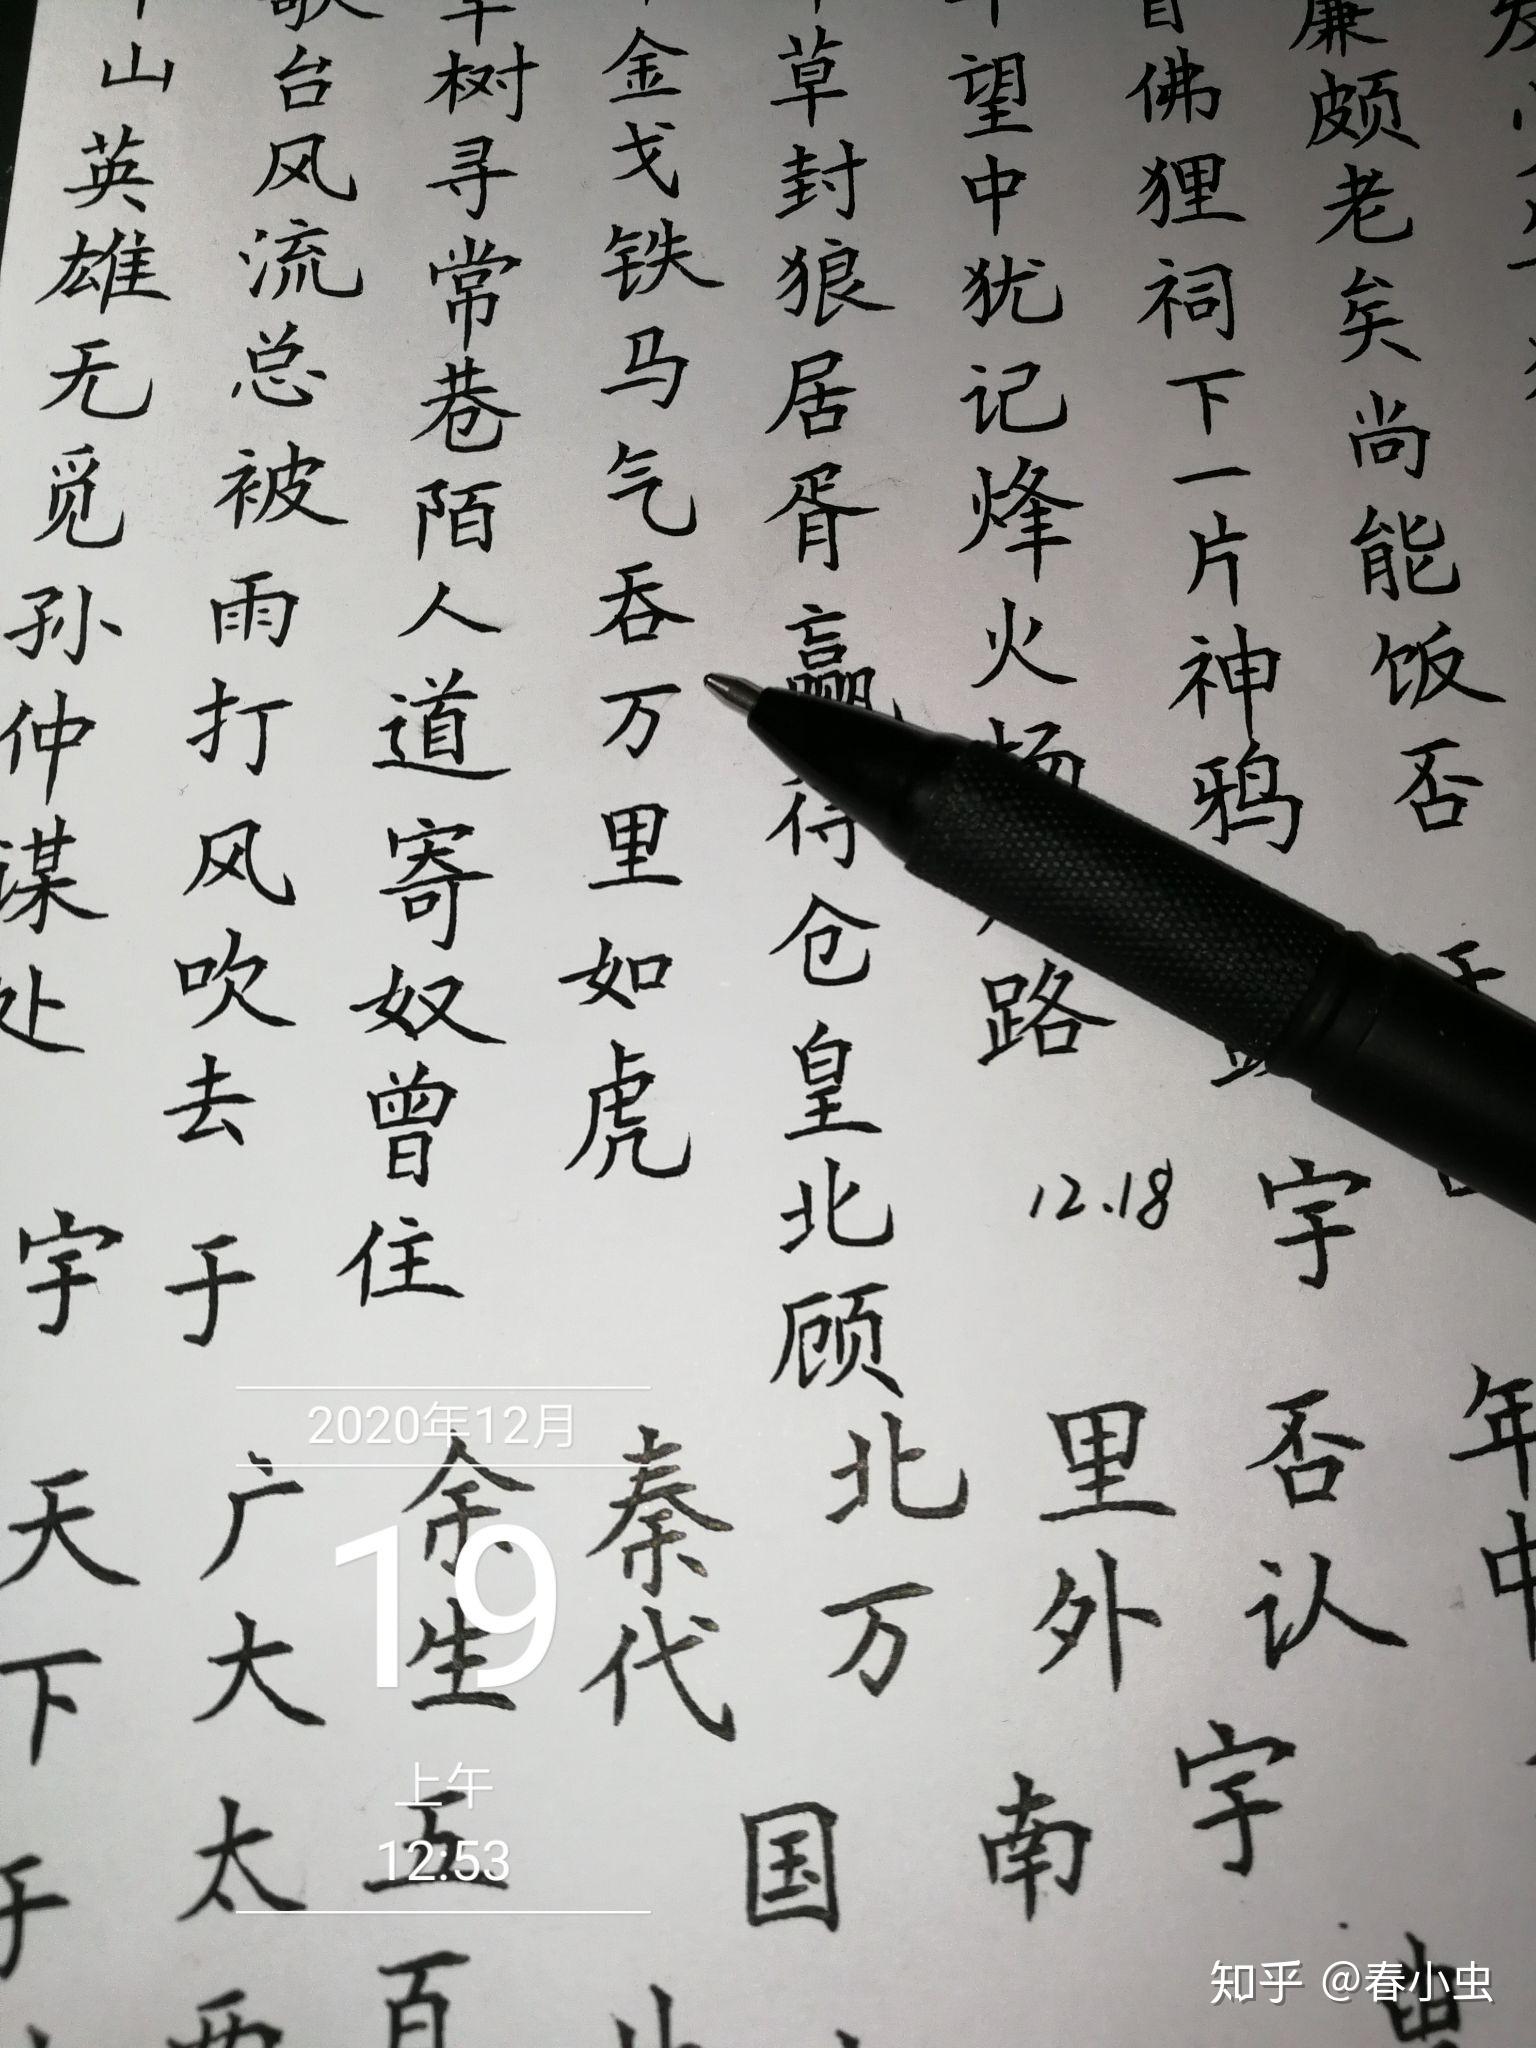 山英雄无觅孙仲谋处
台风流总被雨打风吹去
树寻常巷陌人道寄奴曾住
金戈铁马气吞万里如虎
草封狼居胥赢得仓皇北顾
望中犹记烽火扬路
佛狸祠下一片神鸦
廉颇老矣尚能饭否
12.18
宇
于
宇
天下于
广大太
余生五百
秦代
北万国
里外南
否认宇
年中
2020年12月
19
上午
12:53
知乎 @春小虫